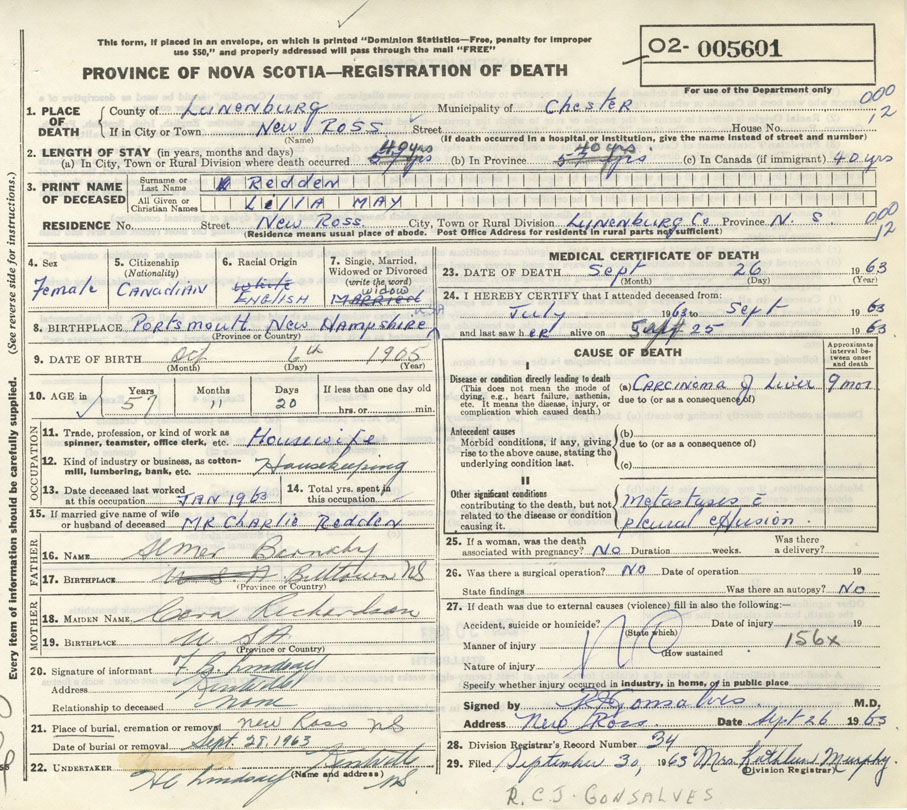 This form, if placed in an envelope, on which is printed "Dominion Statistics—Free, penalty for improper
use $50," and properly addressed will pass through the mail "FREE"
02- 005601
PROVINCE OF NOVA SCOTIA—REGISTRATION OF DEATH
For use of the Department only
000
12
1. PLACE OF DEATH County of LUNENBURG Municipality of CHESTER
If in City or Town NEW ROSS Street House No.
(Name) (If death occurred in a hospital or institution, give the name instead of street and number)
2. LENGTH OF STAY (in years, months and days) 40 yrs 40 yrs
(a) In City, Town or Rural Division where death occurred 57 yrs (b) In Province 57 yrs (c) In Canada (if immigrant) 40 yrs
3. PRINT NAME OF DECEASED Surname or Last Name Redden
All Given or Christian Names LeIIA MAY
RESIDENCE No. Street New Ross City, Town or Rural Division LUNENBURG Co Province N. S.
(Residence means usual place of abode. Post Office Address for residents in rural parts not sufficient)
000
12
4. Sex
Female
5. Citizenship
(Nationality)
CANADIAN
6. Racial Origin
White
ENGLISH
7. Single, Married,
Widowed or Divorced
(write the word)
widow
MARRIED
8. BIRTHPLACE Portsmouth New Hampshire USA
(Province or Country)
9. DATE OF BIRTH Oct 6th 1905
(Month) (Day) (Year)
10. AGE in Years Months Days If less than one day old
57 11 20 hrs. or min.
OCCUPATION
11. Trade, profession, or kind of work as
spinner, teamster, office clerk, etc. Housewife
12. Kind of industry or business, as cotton-
mill, lumbering, bank, etc. Housekeeping
13. Date deceased last worked
at this occupation JAN 1963
14. Total yrs. spent in
this occupation
15. If married give name of wife
or husband of deceased MR Charlie Redden
FATHER
16. NAME Elmer Barnaby
17. BIRTHPLACE U S A Billtown NS
(Province or Country)
MOTHER
18. MAIDEN NAME Cora Richardson
19. BIRTHPLACE U SA
(Province or Country)
20. Signature of informant F. B. Lindsay
Address Kentville
Relationship to deceased none
21. Place of burial, cremation or removal New Ross NS
Date of burial or removal Sept. 28, 1963
22. UNDERTAKER H C Lindsay Kentville NS
(Name and address)
MEDICAL CERTIFICATE OF DEATH
23. DATE OF DEATH Sept 26 1963
(Month) (Day) (Year)
24. I HEREBY CERTIFY that I attended deceased from:
July 1963 to Sept 1963
and last saw her alive on Sept 25 1963
CAUSE OF DEATH
Approximate
interval be-
tween onset
and death
I
Disease or condition directly leading to death
(This does not mean the mode of
dying, e.g., heart failure, asthenia,
etc. It means the disease, injury, or
complication which caused death.)
(a) CARCINOMA of Liver 9 mon
due to (or as a consequence of)
Antecedent causes
Morbid conditions, if any, giving
rise to the above cause, stating the
underlying condition last.
(b)
due to (or as a consequence of)
(c)
II
Other significant conditions
contributing to the death, but not
related to the disease or condition
causing it.
Metastases c̄
pleural effusion.
25. If a woman, was the death
associated with pregnancy? NO Duration weeks. Was there
a delivery?
26. Was there a surgical operation? NO Date of operation 19
State findings Was there an autopsy? NO
27. If death was due to external causes (violence) fill in also the following:—
Accident, suicide or homicide? Date of injury 19
(State which)
NO
Manner of injury 156X
(How sustained
Nature of injury
Specify whether injury occurred in industry, in home, or in public place
Signed by RCJGonsalves M.D.
Address New Ross. Date Sept 26 1963
28. Division Registrar's Record Number 34
29. Filed September 30, 1963 Mrs. Kathleen Murphy
(Division Registrar)
R.C.J. GONSALVES
Every item of information should be carefully supplied. (See reverse side for instructions.)